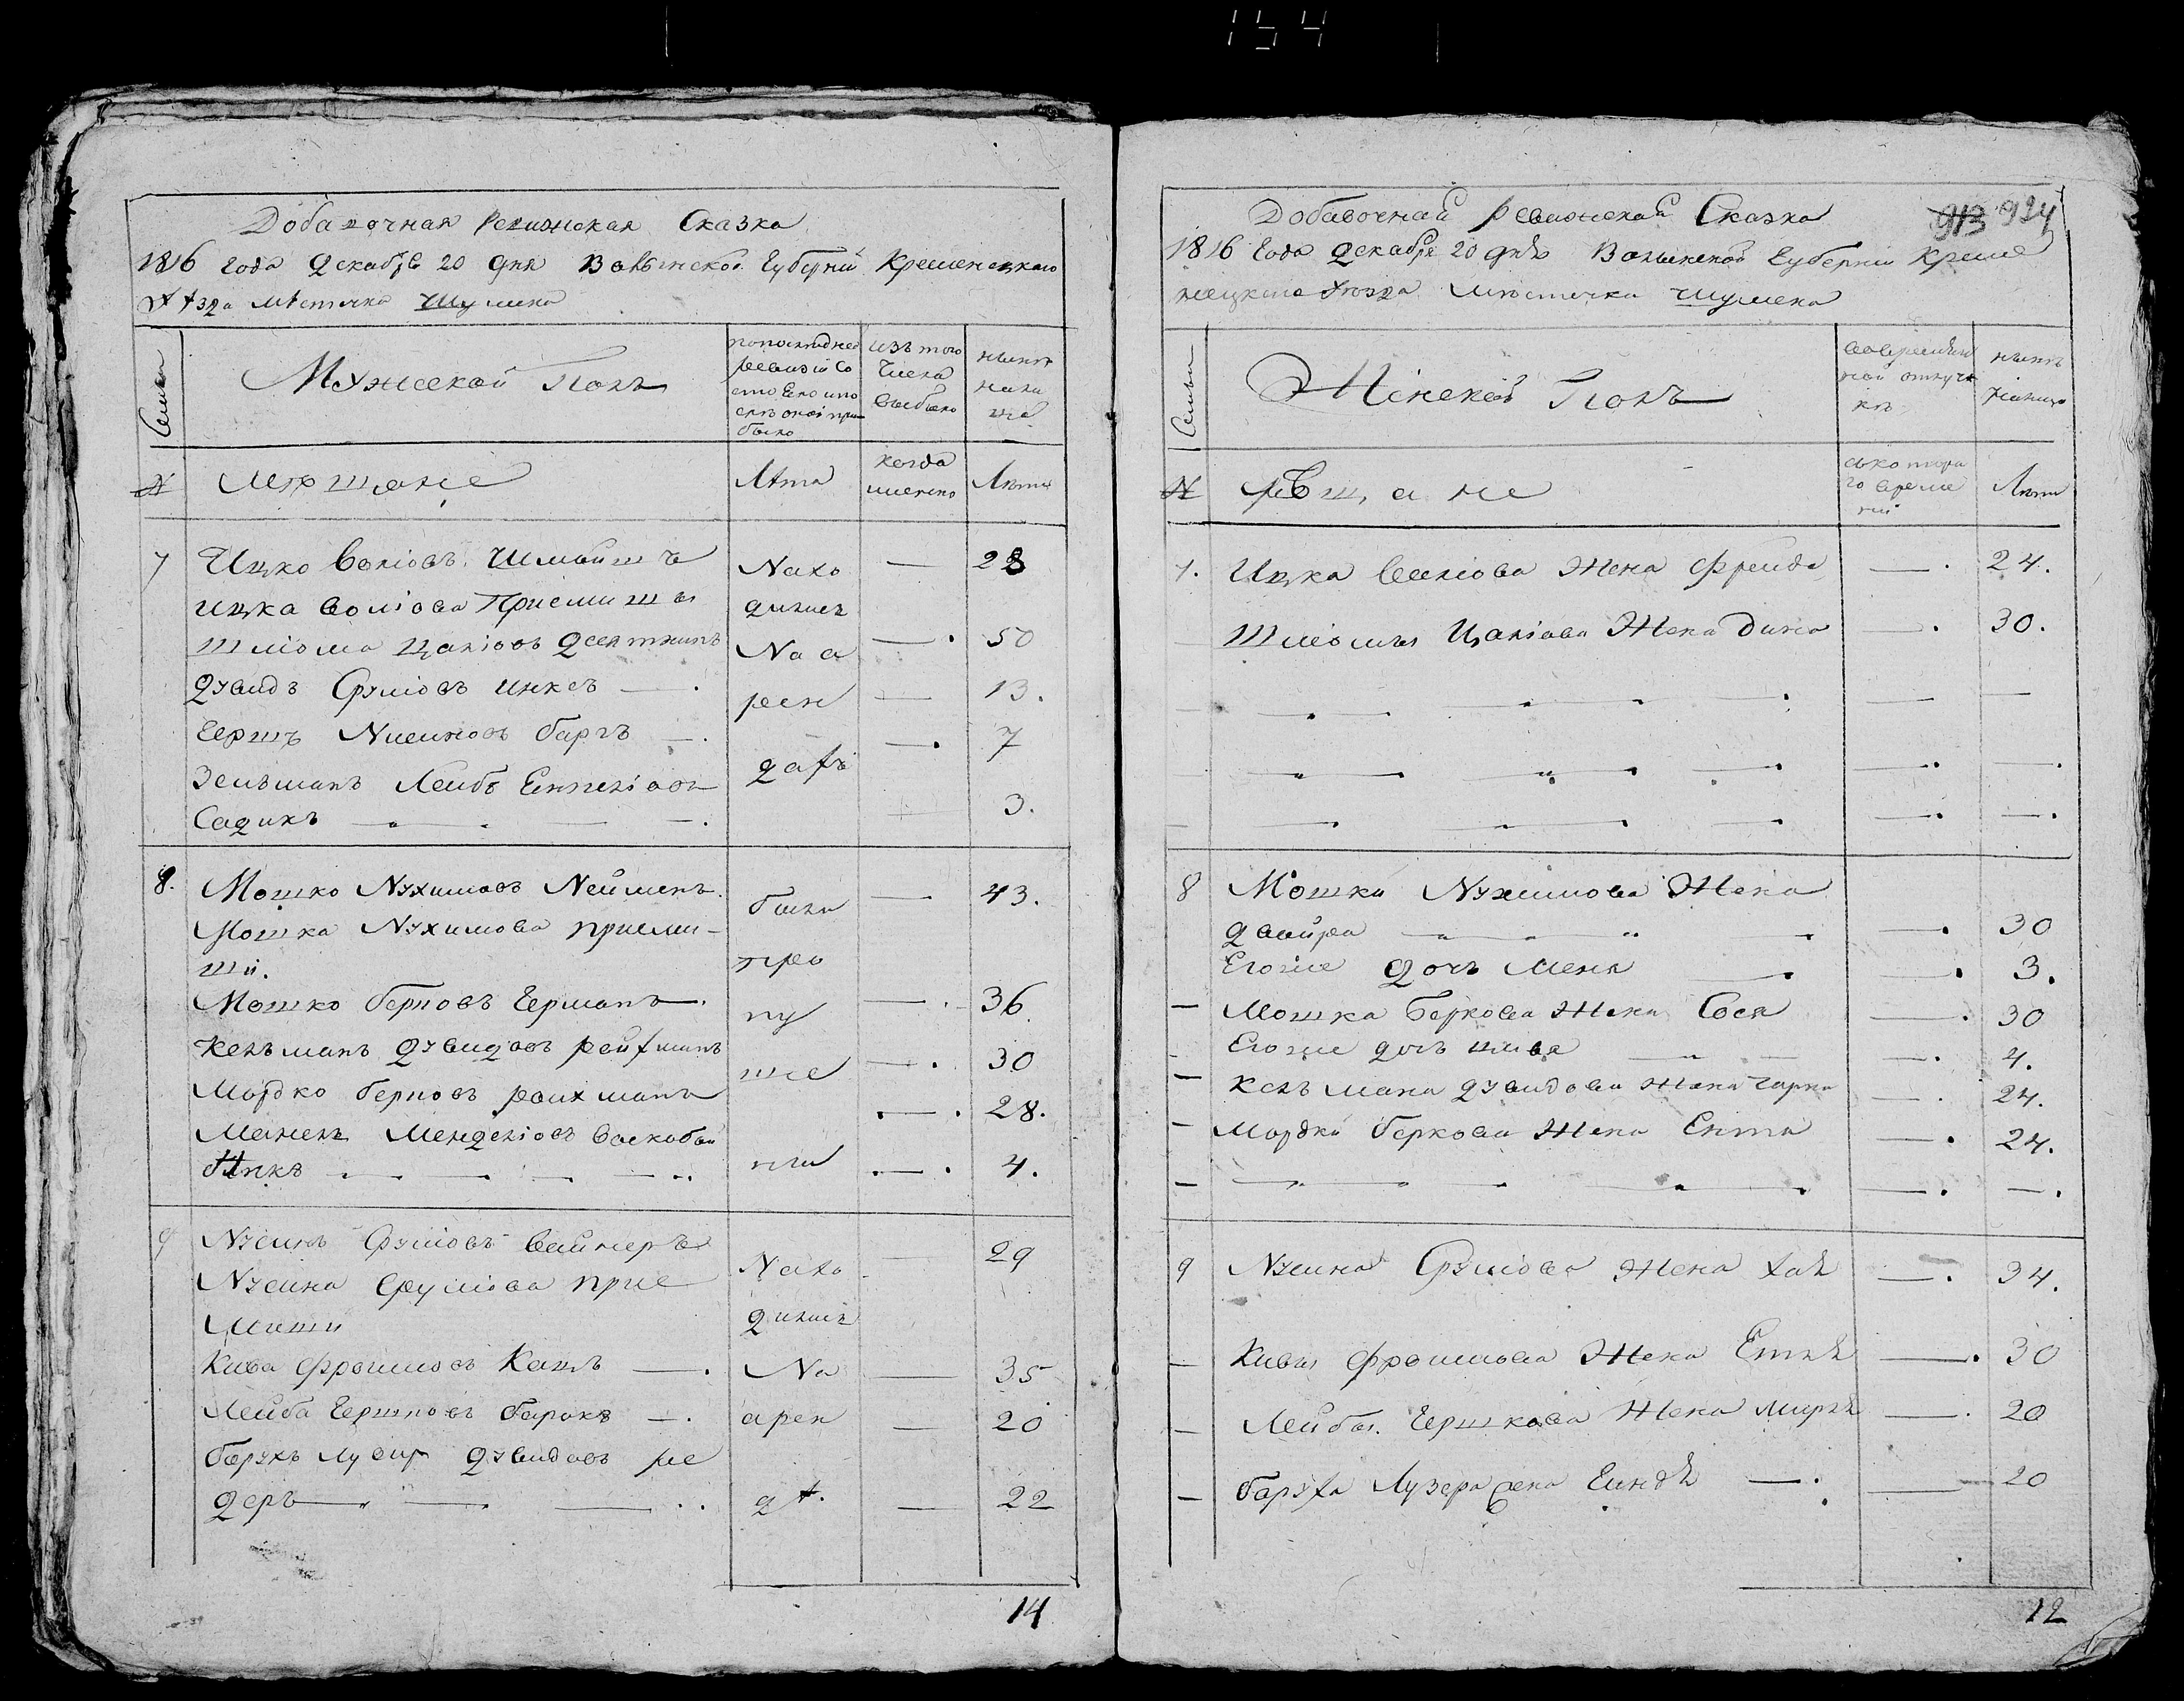 154
Добавочная Ревижская Сказка
1816 года Декабря 20 дня Волынской Губернии Кременецкаго
Уѣзда Мѣстечка Шумска
Семьи
Мужеской Полъ
по последней ревизіи со стояло и после оной при было
изъ того числа выбыло
нынѣ на лицо
№
Мещане
Лѣта
когда именно
Лѣты
7
Ицко Воліовъ Шмойшъ
Нахо
—
28
Ицка Воліова Приемиши
дилися
Шліома Цаліовъ
На а
—.
50
Дувидъ Сруліовъ
рен
—
13.
Гершъ Нисиновъ Баргъ —.
дахъ
—.
7
Зельманъ Лейбъ
Садикъ — — — —.
3.
8.
Мошко Нухимовъ Нейменъ.
были
—
43.
Мошка Нухимова приеми-
ши.
про
Мошко Берковъ Германъ—.
пу
—.
36
Кельманъ ДувидовъРойхманъ
ще
—.
30
Мордко Берковъ Роихманъ
—.
28.
Менделіовъ Воскобой
никъ — — — —..
ни
—.
4.
9
Нусинъ Сруліовъ Вайнеръ
Нахо
—
29
Нусина Сруліова прие
миши
дилися
Кива Фроимовъ Кацъ —.
На
—
35
Лейба Гершковъ —.
арен
—
20
Борухъ Лузеръ Дувидовъ Ре
деръ— — — ..
дѣ.
—
22
14
Добавочная ревижская Сказка
913 924
1816 Года Декабря 20 дня Волынской Губерніи Креме
нецкаго Уѣзда Мѣстечка Шумска
Семьи
Женской Полъ
во временной отлучкѣ
нынѣ на лицо
№
Мѣщане
съ котораго времени
Лѣты
7.
Ицка Воліова Жена Фрейда
—.
24.
Шліомы Цаліова Жена Дина
—.
30.
8
Мошки Нухимова Жена
Двойра
—.
30
Егоже дочь Меня
—.
3.
— Мошка Беркова Жена Сося
—.
30
— Егоже дочь
—.
4.
— Кельмана Дувидова Жена Чарна
—.
24.
— Мордки Беркова Жена Ента
—.
24.
9
Нусина Сруліова Жена Хая
—.
34.
— Кивы Фроимова Жена
—.
30
— Лейбы Гершкова Жена
—.
20
— Боруха Лузера жена —.
—
20
12